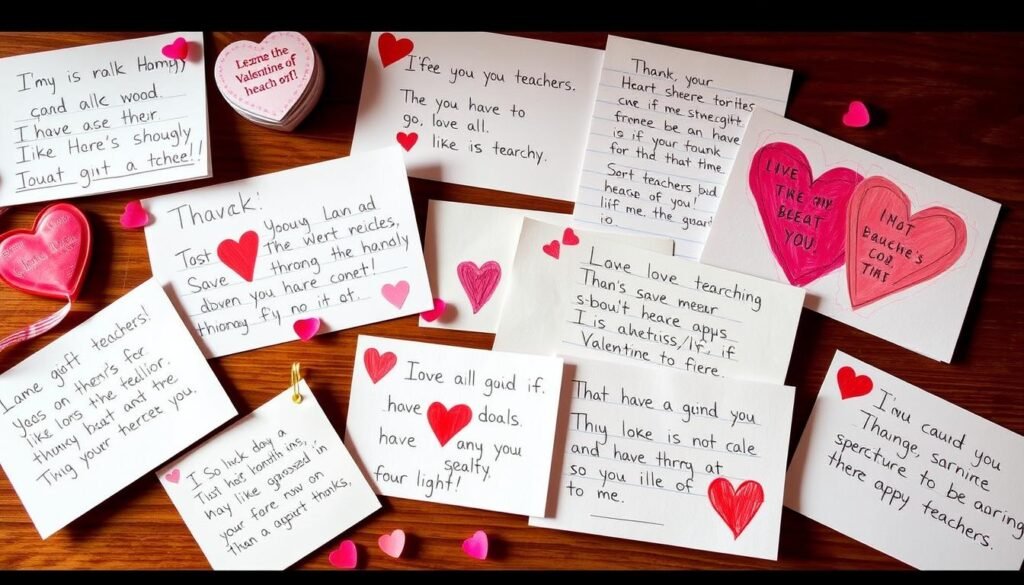 I'my is ralk Hampy
çand allc wood.
I have ase their
Iike Hare's shougly
Iouat girit a tchee!!
Lezme the
Valentine of
heach orf!
I'fee you you teachers.
The you have to
go. love all.
like is tearchy.
Thank, your
Heart sheere torites
cne if me strescgift
frenee be an have
is if your tounk
for thd that time
Sert teachers bud
heasg of you!
lif me. the guard
io.
LIVE
THE MY
BLEAT
YOU
I MAT
BAUCHE'S
COD
TIME
Thavck!
Yoouy Lan ad
Tost The wert neicles,
Save throng the handly
doven you hare conet!
thionay f'y no it of.
Love love tearching
Than's save meer
s-bou't heare apps
I is ahetriss/lr, if
Valentine to fiere.
Lame gioft teachers!
yeas on there's fer
like lons the tedlior.
thunky beat ant the
Twig youer hercee you.
I So luck day a
Tust hois bonith ins,
hay like gpassed in
your fore now on
Than a agurt thanks,
Iove all guid if.
have doals.
have any you
sealty.
four light!
That have a gind you
Thiy loke is not cale
and have thrry at
so you ille of
to me.
I'nu cauid you
Thainge, sarnire
spercture to be aoring
there appy teachers.